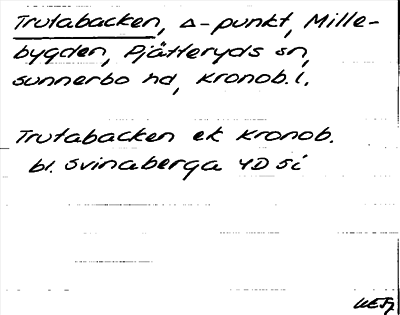 Trutabacken, Δ-punkt, Mille-
bygden, Pjätteryds sn,
Sunnerbo hd, Kronob. l.
Trutabacken ek Kronob.
bl. Svinaberga 4D 5i